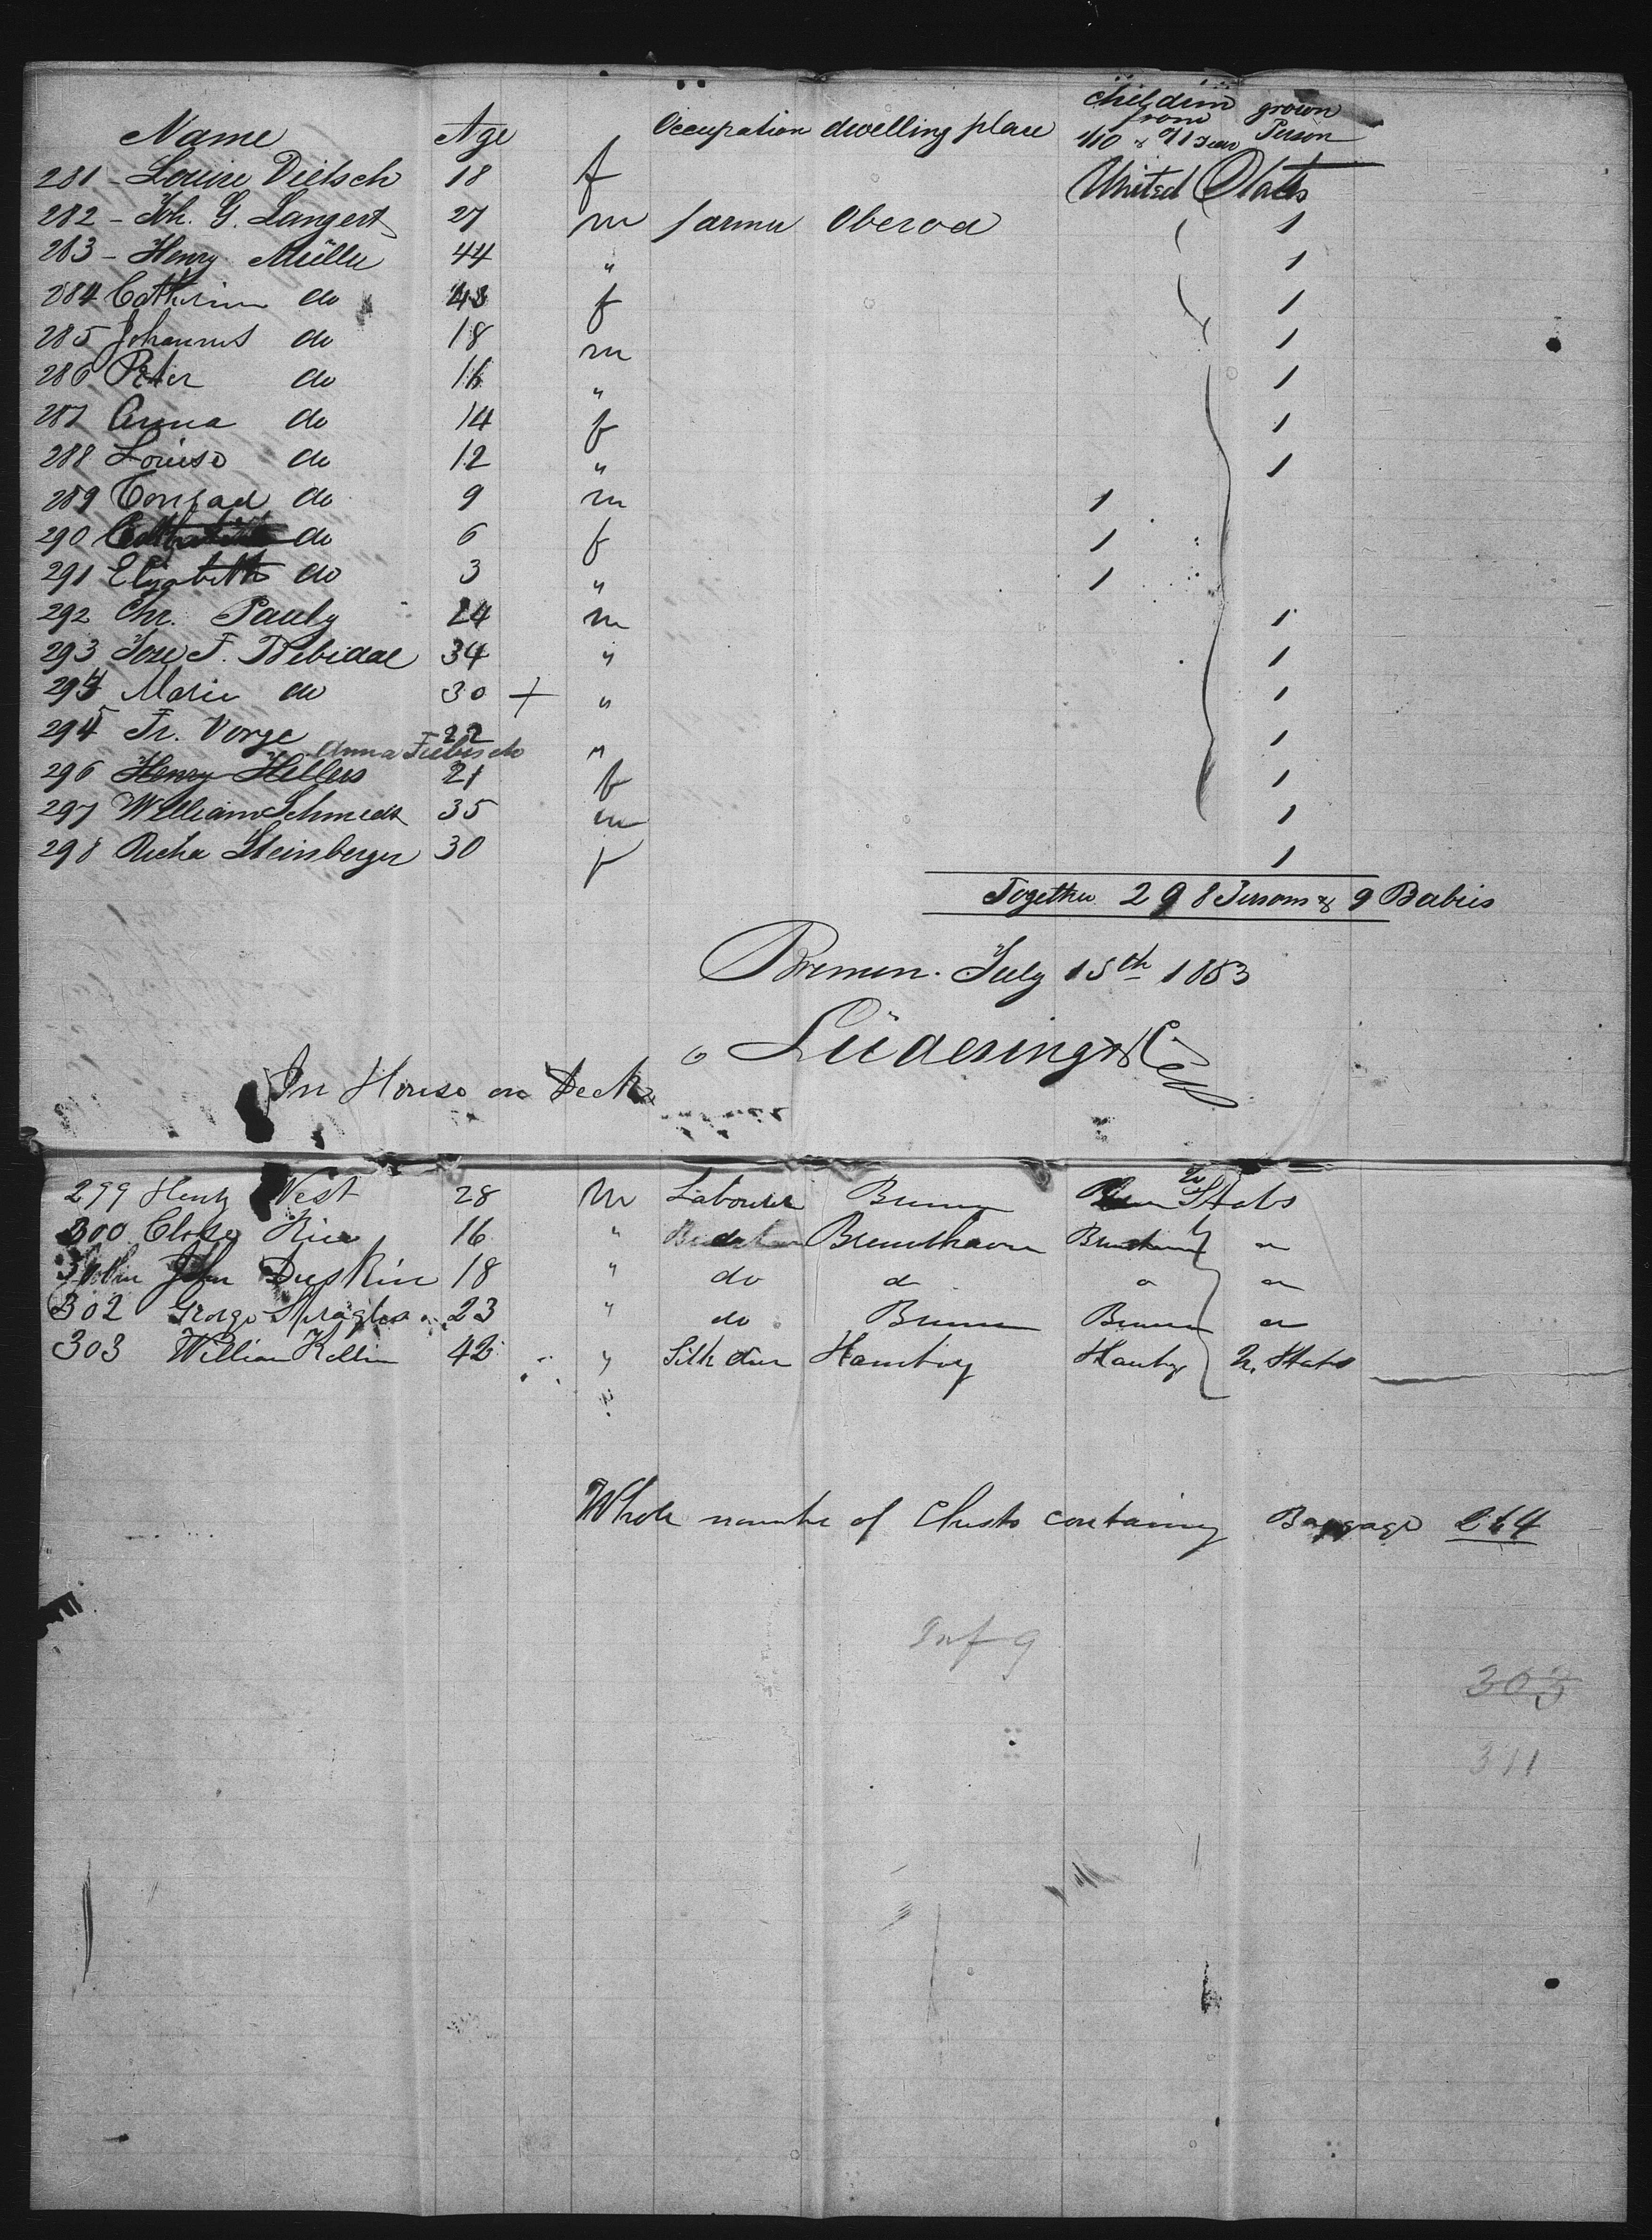 Name Age Occupation dwelling place children from 1/10 & 0/1 Year grown Person
281 - Louise Dietsch 18 f United States
282 - Joh. G. Langert 27 m farmer Oberod 1
283 - Henry Müller 44 " 1
284 Catherine do 43 f 1
285 Johannes do 18 m 1
286 Peter do 16 " 1
287 Anna do 14 f 1
288 Louise do 12 " 1
289 Conrad do 9 m 1
290 do 6 f 1
291 Elisabeth do 3 " 1
292 Chr. Pauly 24 m 1
293 Jose F. 34 " 1
294 Marie do 30 + " 1
295 Fr. Vorge 22 " 1
Anna Fiebisch
296 Henry Hellers 21 f 1
297 William Schmidt 35 m 1
298 Richa Steinberger 30 f 1
Together 298 Persons & 9 Babies
Bremen. July 15th 1853
Lüdering & Co
In House on Deck
299 Henry West 28 m Labourer Bremen U States
300 Rice 16 " Bremerhaven "
John Duskin 18 " do do " "
302 George 23 " do Bremen Bremen "
303 William Kellin 42 " Silk dier Hamburg Hamburg U. States
"
Whole number of Chests containing Baggage 264
Inf 9
303
311